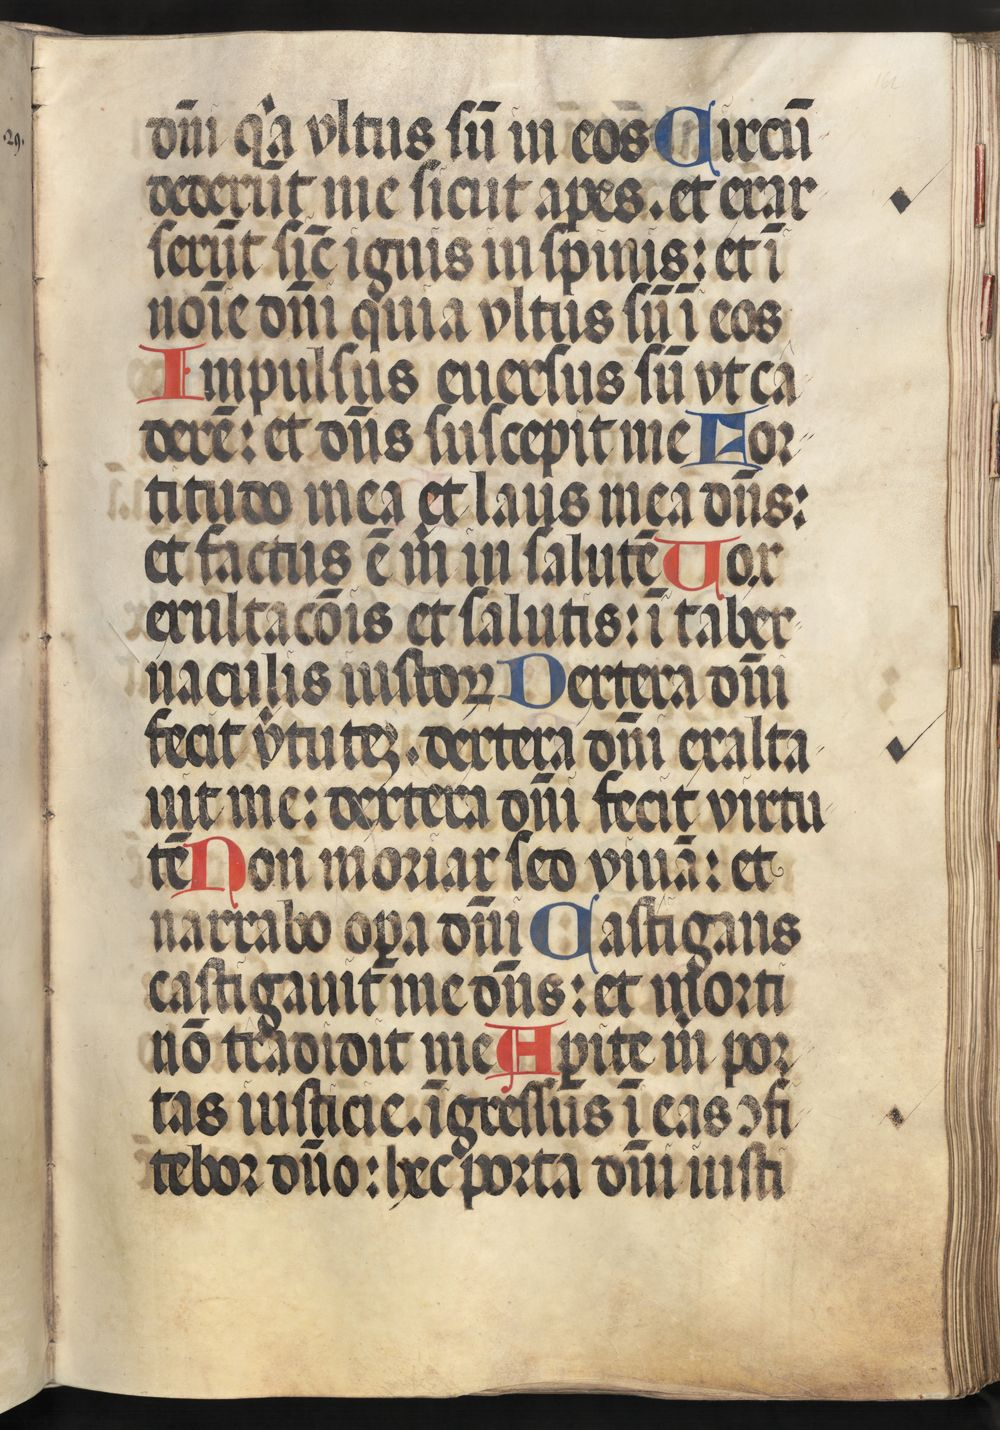 dn̄i qͥa vltus sū in eos Circū
dederūt me sicut apes. et exar
serūt sic̄ ignis in spinis: et ī
noīe dn̄i quia vltus sū ī eos
Impulsus euersus sū vt ca
derē: et dn̄s suscepit me For
titudo mea et laus mea dn̄s:
et factus ē m̄ in salutē Uox
exultacōis et salutis: ī taber
naculis iustoꝝ Dextera dn̄i
fecit vͥtutez. dextera dn̄i exalta
uit me: dextera dn̄i fecit virtu
tē Non moriar sed viuā: et
narrabo oꝑa dn̄i Castigans
castigauit me dn̄s: et morti
nō tradidit me Aꝑite m̄ por
tas iusticie. īgressus ī eas ꝯfi
tebor dn̄o: hec porta dn̄i iusti